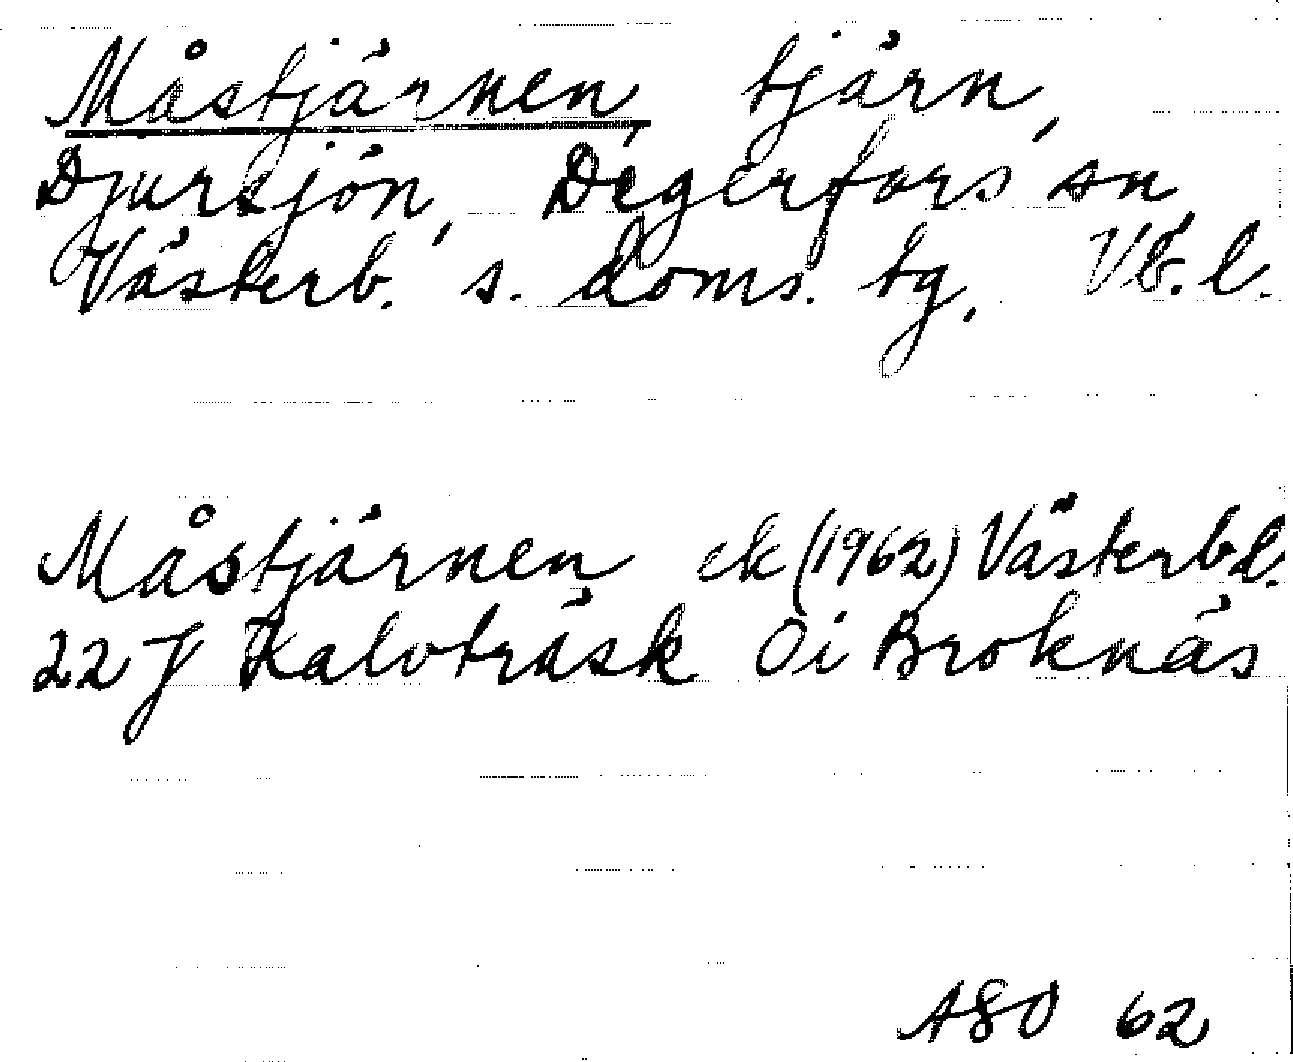 Måstjärnen, tjärn,
Djursjön, Degerfors sn,
Västerb. s. doms. tg. Vb. l.
Måstjärnen ek (1962) Västerb l.
22 J Kalvträsk Öi Broknäs
ASO 62